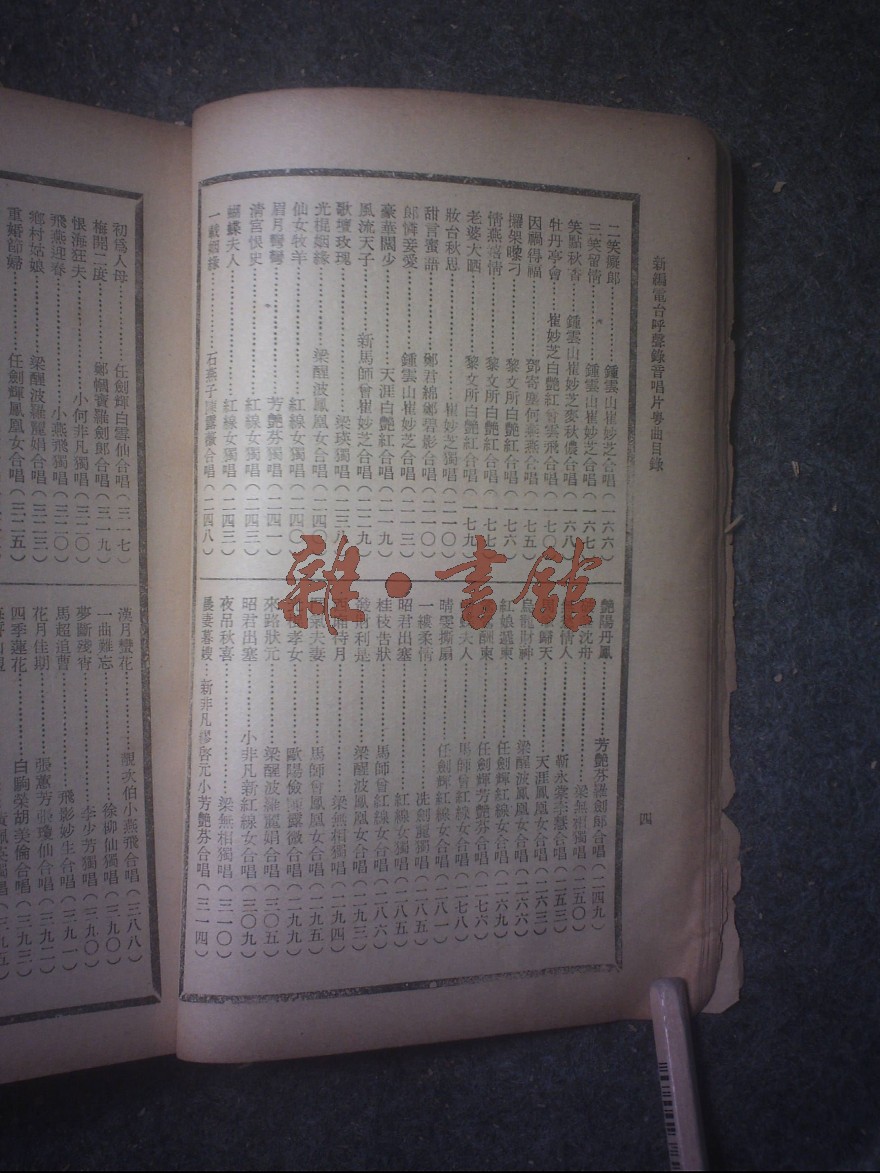 新編電台呼聲錄音唱片粵曲目錄
四
二笑癡郎………鍾雲山崔妙芝合唱(一六六)
三笑留情………鍾雲山崔妙芝合唱(一六七)
笑點秋香…鍾雲山崔妙芝麥秋儂合唱(一六八)
牡丹亭會…崔妙芝白艷紅曾雲飛合唱(一七〇)
因禍得福………鄧寄塵何燕燕合唱(一七五)
擺架嚟刁………黎文所白艷紅合唱(一七六)
情燕留情………黎文所白艷紅合唱(一七七)
老婆大晒………黎文所白艷紅合唱(一七九)
妝台秋思…………崔妙芝獨唱(二一〇)
甜言蜜語………鄭君綿鄭碧影合唱(二一〇)
郎憐妾愛………鍾雲山崔妙芝合唱(二一三)
豪華闊少………天涯白艷紅合唱(二一九)
風流天子………新馬師曾崔妙芝合唱(二二九)
歌壇玫瑰…………梁瑛獨唱(二三八)
光棍姻緣………梁醒波鳳凰女合唱(二四〇)
仙女牧羊…………紅線女獨唱(二四〇)
眉月彎彎…………芳艷芬獨唱(二四一)
清宮恨史…………紅線女獨唱(二四三)
蝴蝶夫人…………紅線女獨唱(二四三)
一載姻緣………石燕子陳露薇合唱(二四八)
艷陽丹鳳………芳艷芬羅劍郎合唱(二四九)
沈舟…………梁無相獨唱(二五〇)
情人………靳永棠李慧合唱(二五三)
歸天………天涯鳳凰女合唱(二六三)
烏龍財神………梁醒波鳳凰女合唱(二六六)
紅娘遞柬………任劍輝紅線女合唱(二六九)
酬柬………任劍輝芳艷芬合唱(二七六)
夫人………馬師曾紅線女合唱(二七八)
晴雯撕扇………任劍輝紅線女合唱(二八一)
一縷柔情…………冼劍麗獨唱(二八五)
昭君出塞…………紅線女獨唱(二八五)
桂枝告狀………馬師曾紅線女合唱(二八六)
利是………梁醒波鳳凰女合唱(二九三)
待月…………梁無相獨唱(二九四)
夫妻………馬師曾鳳凰女合唱(二九五)
孝女………歐陽儉陳露薇合唱(二九九)
來路狀元………梁醒波羅麗娟合唱(三〇五)
昭君出塞………小非凡新紅線女合唱(三〇九)
夜吊秋喜…………梁無相獨唱(三一〇)
晨妻暮嫂…新非凡繆啓元小芳艷芬合唱(三一四)
初爲人母………任劍輝白雪仙合唱(三一七)
梅開二度………鄭幗寶羅劍郎合唱(三一九)
恨海狂夫…………小何非凡獨唱(三二〇)
飛燕迎春…………小燕飛獨唱(三二〇)
鄉村姑娘………梁醒波羅麗娟合唱(三二三)
重婚節婦………任劍輝鳳凰女合唱(三二五)
漢月蠻花………靚次伯小燕飛合唱(三八八)
一曲難忘…………徐柳仙獨唱(三九〇)
夢斷殘宵…………李少芳獨唱(三九〇)
馬超追曹…………飛影妙生合唱(三九一)
花月佳期………張惠芳張瓊仙合唱(三九二)
四季蓮花………白駒榮胡美倫合唱(三九三)
雜·書館